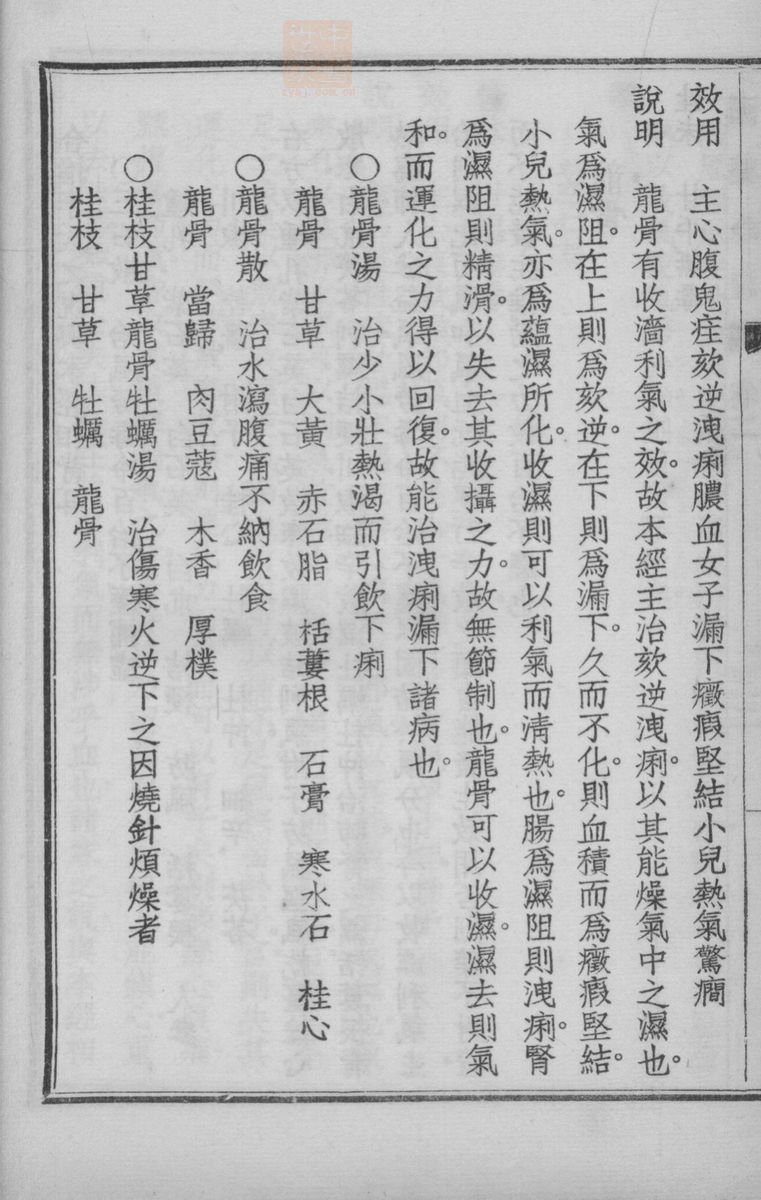 效用　主心腹鬼疰欬逆洩痢膿血女子漏下癥瘕堅結小兒熱氣驚癎
說明　龍骨有收濇利氣之效。故本經主治欬逆洩痢。以其能燥氣中之濕也。
氣爲濕阻。在上則爲欬逆。在下則爲漏下。久而不化。則血積而爲癥瘕堅結。
小兒熱氣。亦爲蘊濕所化。收濕則可以利氣而淸熱也。腸爲濕阻則洩痢。腎
爲濕阻則精滑。以失去其收攝之力。故無節制也。龍骨可以收濕。濕去則氣
和。而運化之力得以回復。故能治洩痢漏下諸病也。
○龍骨湯　治少小壯熱渴而引飲下痢
龍骨　甘草　大黃　赤石脂　栝蔞根　石膏　寒水石　桂心
○龍骨散　治水瀉腹痛不納飲食
龍骨　當歸　肉豆蔻　木香　厚樸
○桂枝甘草龍骨牡蠣湯　治傷寒火逆下之因燒針煩燥者
桂枝　甘草　牡蠣　龍骨